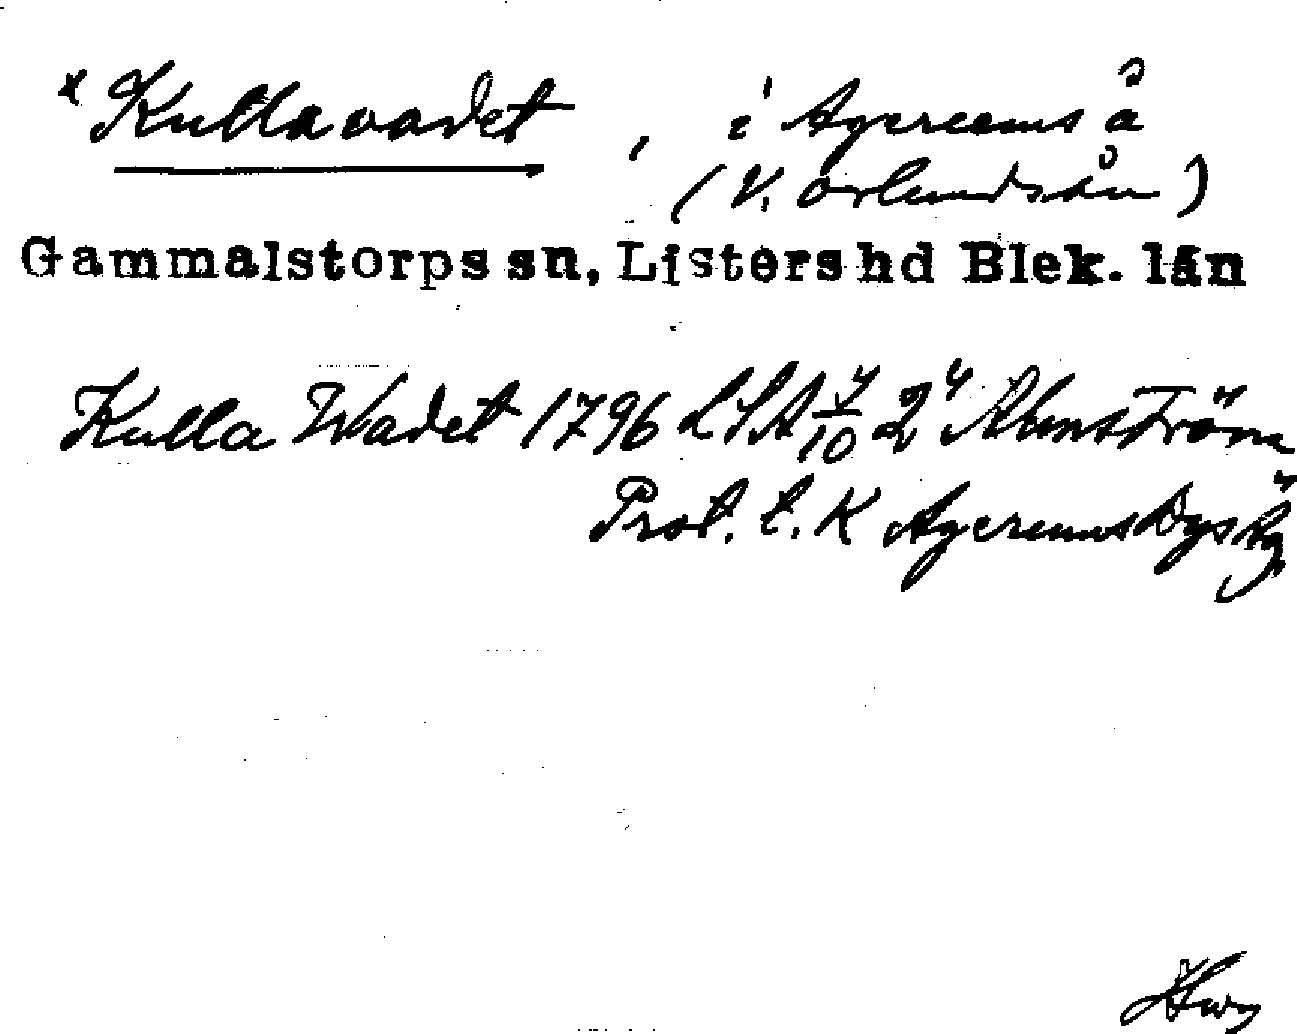 x Kullavadet, i Agerums å
(V. Orlundsån)
Gammalstorps sn, Listers hd Blek. län
Kulla Wadet 1796 LSA 4/10 2⁴ Almström
Prot. t. K Agerums